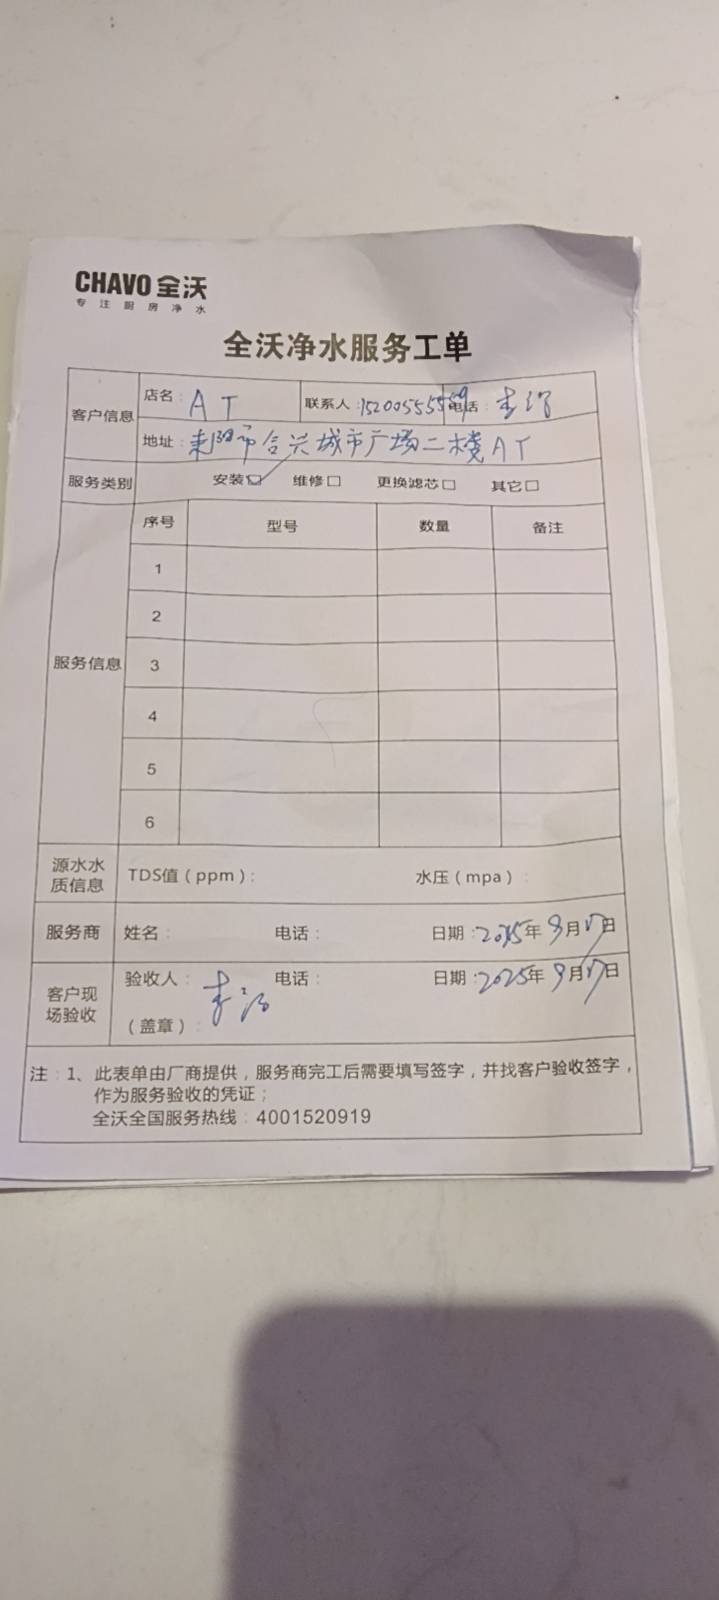 CHAVO 全沃
专注厨房净水
全沃净水服务工单
客户信息
店名: AT 联系人: 15200555559 电话:
地址: 耒阳市合兴城市广场二楼AT
服务类别 安装☑ 维修□ 更换滤芯□ 其它□
服务信息
序号 型号 数量 备注
1
2
3
4
5
6
源水水质信息 TDS值(ppm): 水压(mpa):
服务商 姓名: 电话: 日期: 2025年9月17日
客户现场验收 验收人: 电话: 日期: 2025年9月17日
(盖章):
注:1、此表单由厂商提供,服务商完工后需要填写签字,并找客户验收签字,
作为服务验收的凭证;
全沃全国服务热线:4001520919